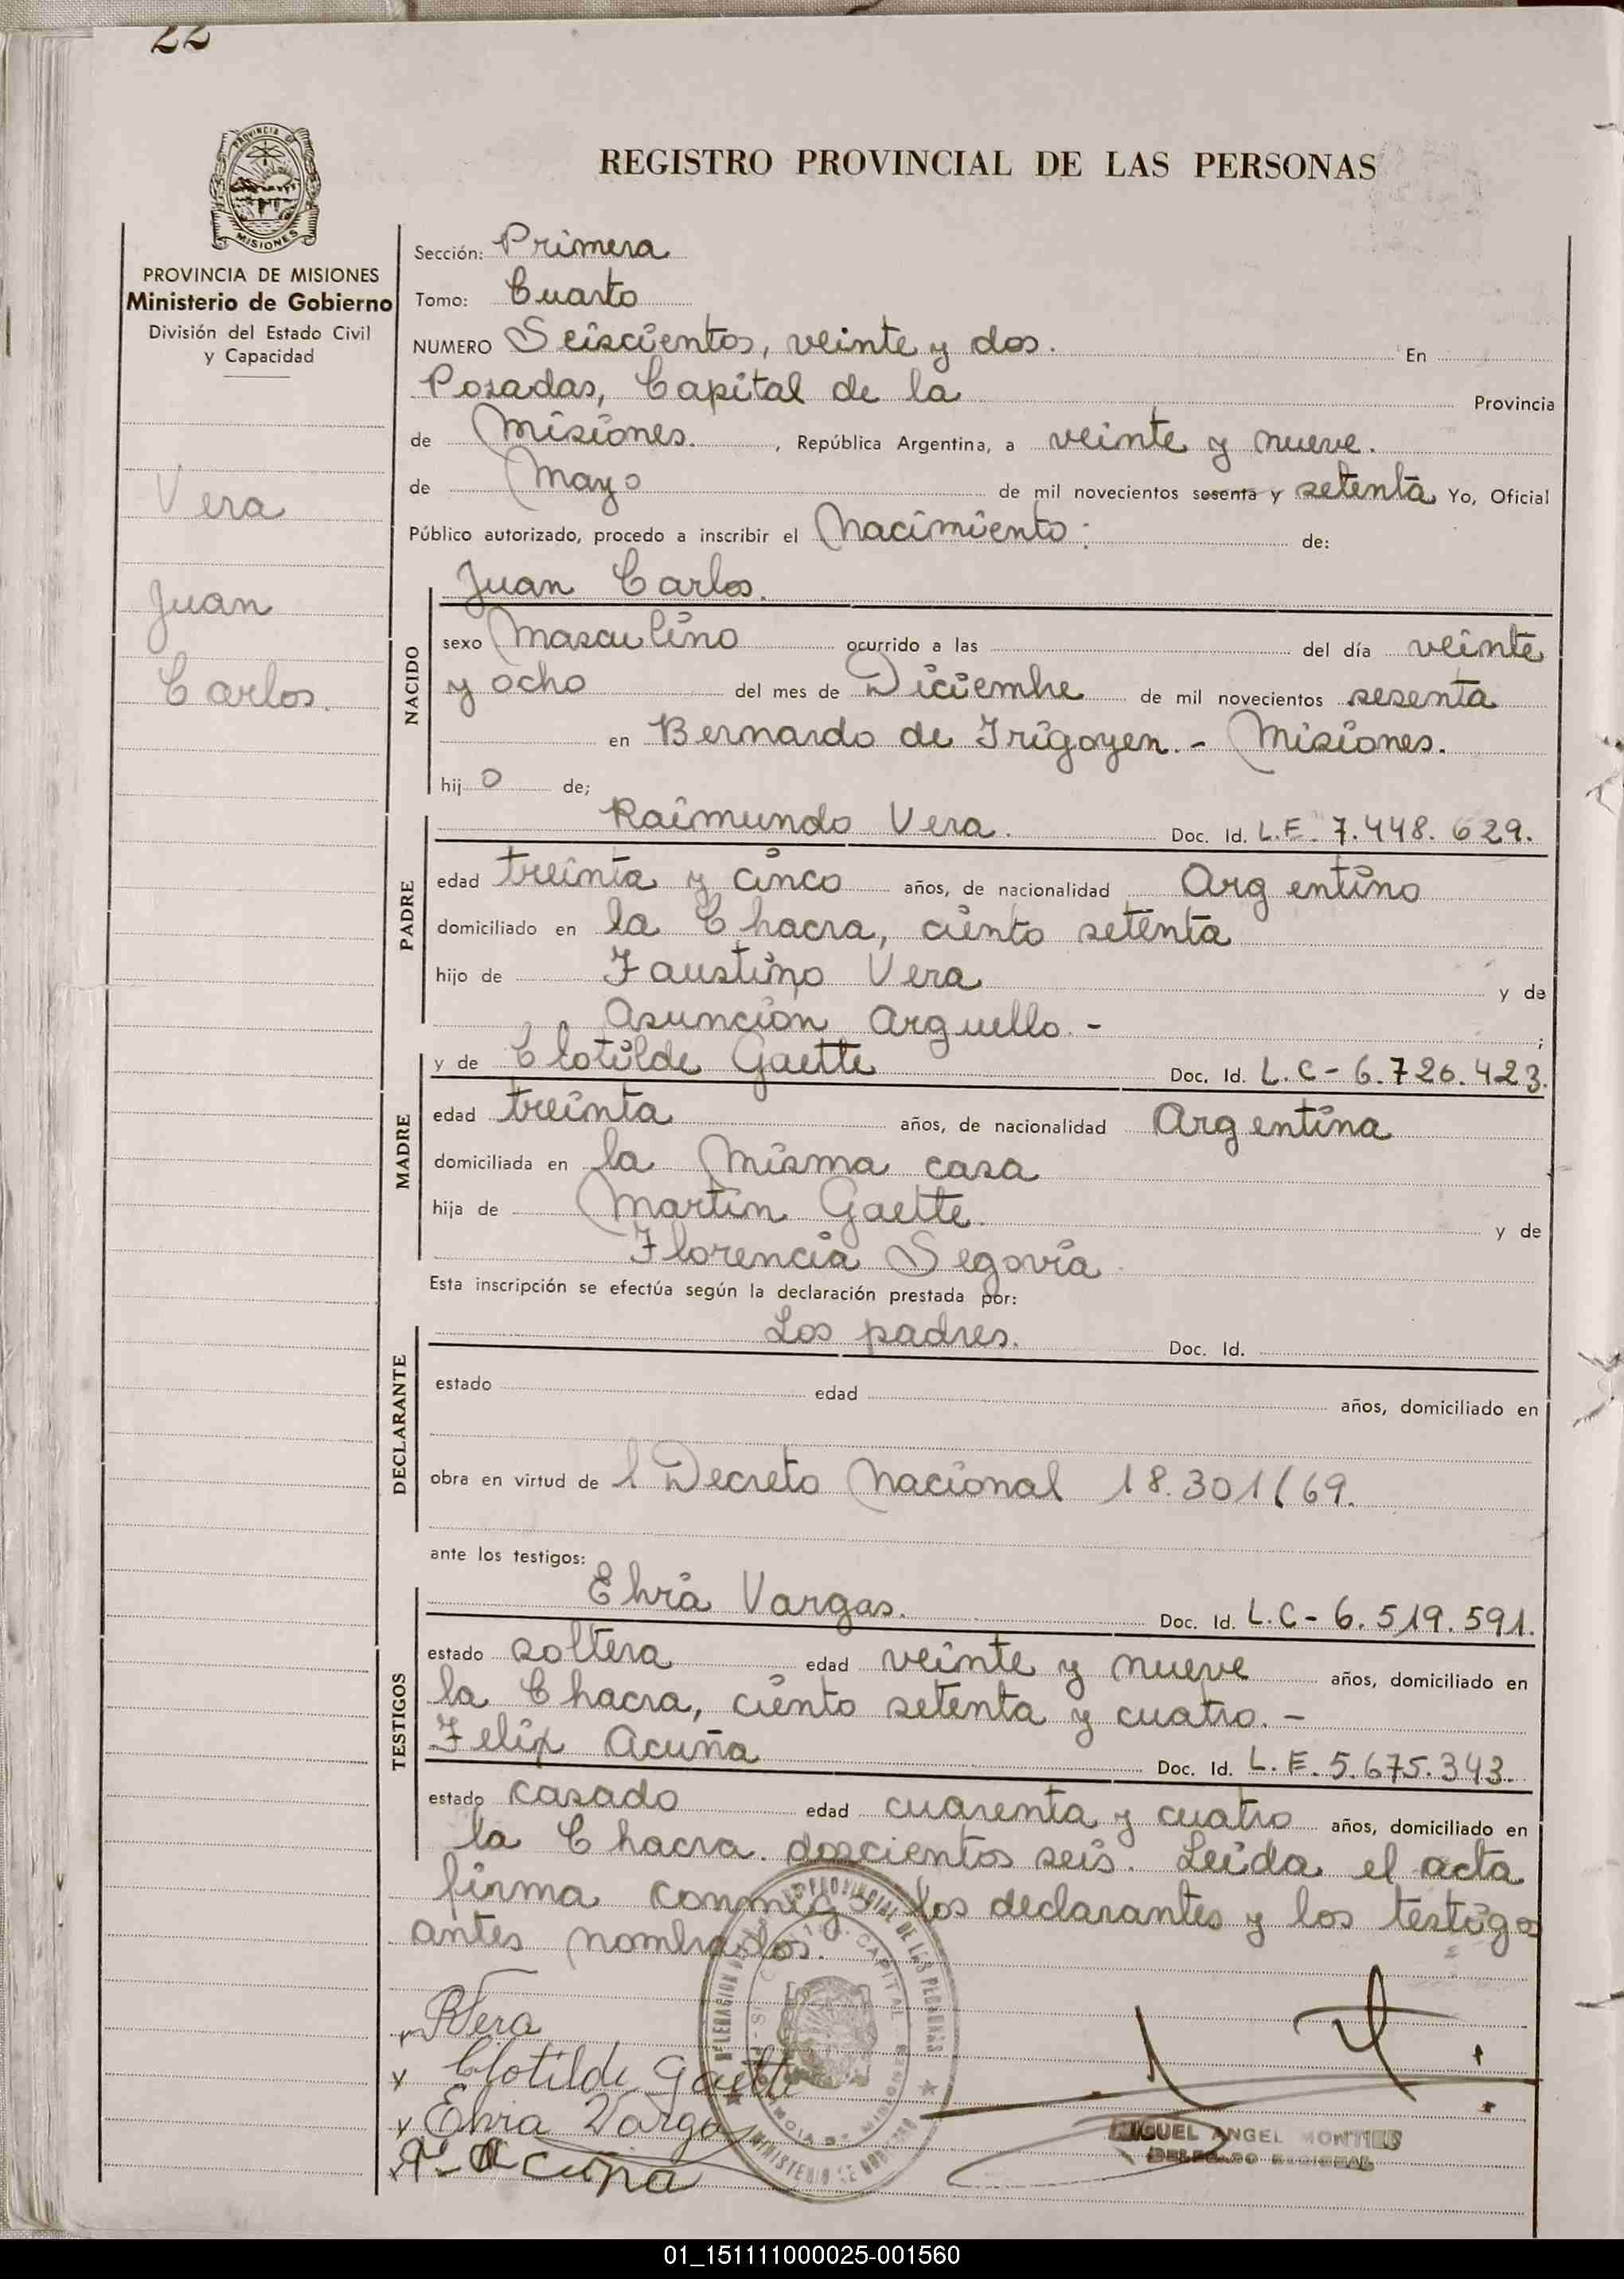 22
PROVINCIA DE
MISIONES
REGISTRO PROVINCIAL DE LAS PERSONAS
PROVINCIA DE MISIONES
Ministerio de Gobierno
División del Estado Civil
y Capacidad
Vera
Juan
Carlos.
Sección: Primera
Tomo: Cuarto
NUMERO Seiscientos, veinte y dos. En
Posadas, Capital de la Provincia
de Misiones. , República Argentina, a veinte y nueve.
de Mayo de mil novecientos sesenta y setenta Yo, Oficial
Público autorizado, procedo a inscribir el Nacimiento: de:
Juan Carlos.
NACIDO
sexo Masculino ocurrido a las del día veinte
y ocho del mes de Diciembre de mil novecientos sesenta
en Bernardo de Irigoyen. - Misiones.
hij o de;
PADRE
Raimundo Vera. Doc. Id. L.E. 7.448.629.
edad treinta y cinco años, de nacionalidad Argentino
domiciliado en la Chacra, ciento setenta
hijo de Faustino Vera y de
Asunción Arguello. - ;
MADRE
y de Clotilde Gaette Doc. Id. L.C - 6.726.423.
edad treinta años, de nacionalidad Argentina
domiciliada en la misma casa
hija de Martín Gaette. y de
Florencia Segovia.
Esta inscripción se efectúa según la declaración prestada por:
DECLARANTE
Los padres. Doc. Id.
estado edad años, domiciliado en
obra en virtud de l Decreto Nacional 18.301/69.
ante los testigos:
TESTIGOS
Elvia Vargas. Doc. Id. L.C - 6.519.591.
estado soltera edad veinte y nueve años, domiciliado en
la Chacra, ciento setenta y cuatro. -
Felix Acuña Doc. Id. L.E. 5.675.343.
estado casado edad cuarenta y cuatro años, domiciliado en
la Chacra. doscientos seis. Leída el acta
firma conmigo los declarantes y los testigos
antes nombrados.
RVera
Clotilde Gaette
Elvia Vargas
F. Acuña
MINISTERIO DE GOBIERNO
MIGUEL ANGEL MONTIEL
DELEGADO REGIONAL
01_151111000025-001560